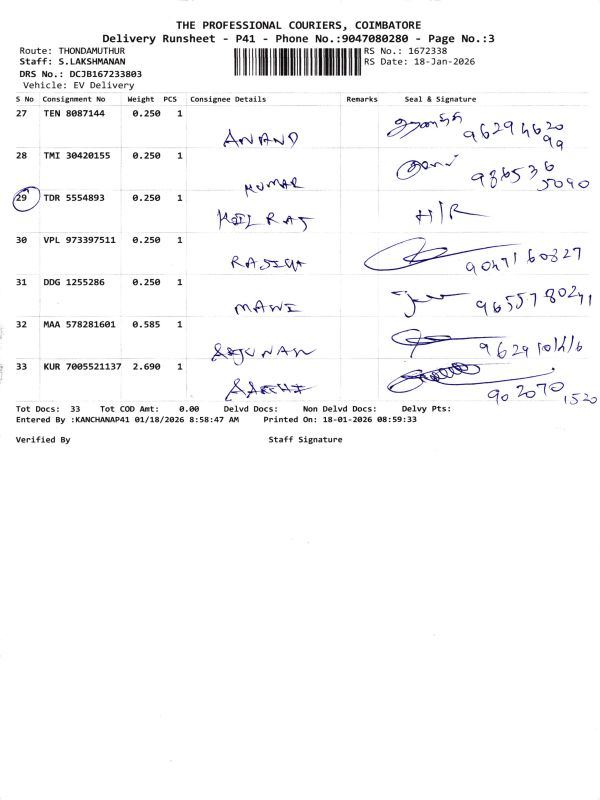 THE PROFESSIONAL COURIERS, COIMBATORE
Delivery Runsheet - P41 - Phone No.:9047080280 - Page No.:3
Route: THONDAMUTHUR RS No.: 1672338
Staff: S.LAKSHMANAN RS Date: 18-Jan-2026
DRS No.: DCJB167233803
Vehicle: EV Delivery
S No Consignment No Weight PCS Consignee Details Remarks Seal & Signature
27 TEN 8087144 0.250 1
ANAND
28 TMI 30420155 0.250 1
KUMAR 936536 5090
29 TDR 5554893 0.250 1
H/R
30 VPL 973397511 0.250 1
9047160327
31 DDG 1255286 0.250 1
MANI 9655780241
32 MAA 578281601 0.585 1
ARJUNAN
33 KUR 7005521137 2.690 1
902070 1520
Tot Docs: 33 Tot COD Amt: 0.00 Delvd Docs: Non Delvd Docs: Delvy Pts:
Entered By :KANCHANAP41 01/18/2026 8:58:47 AM Printed On: 18-01-2026 08:59:33
Verified By Staff Signature